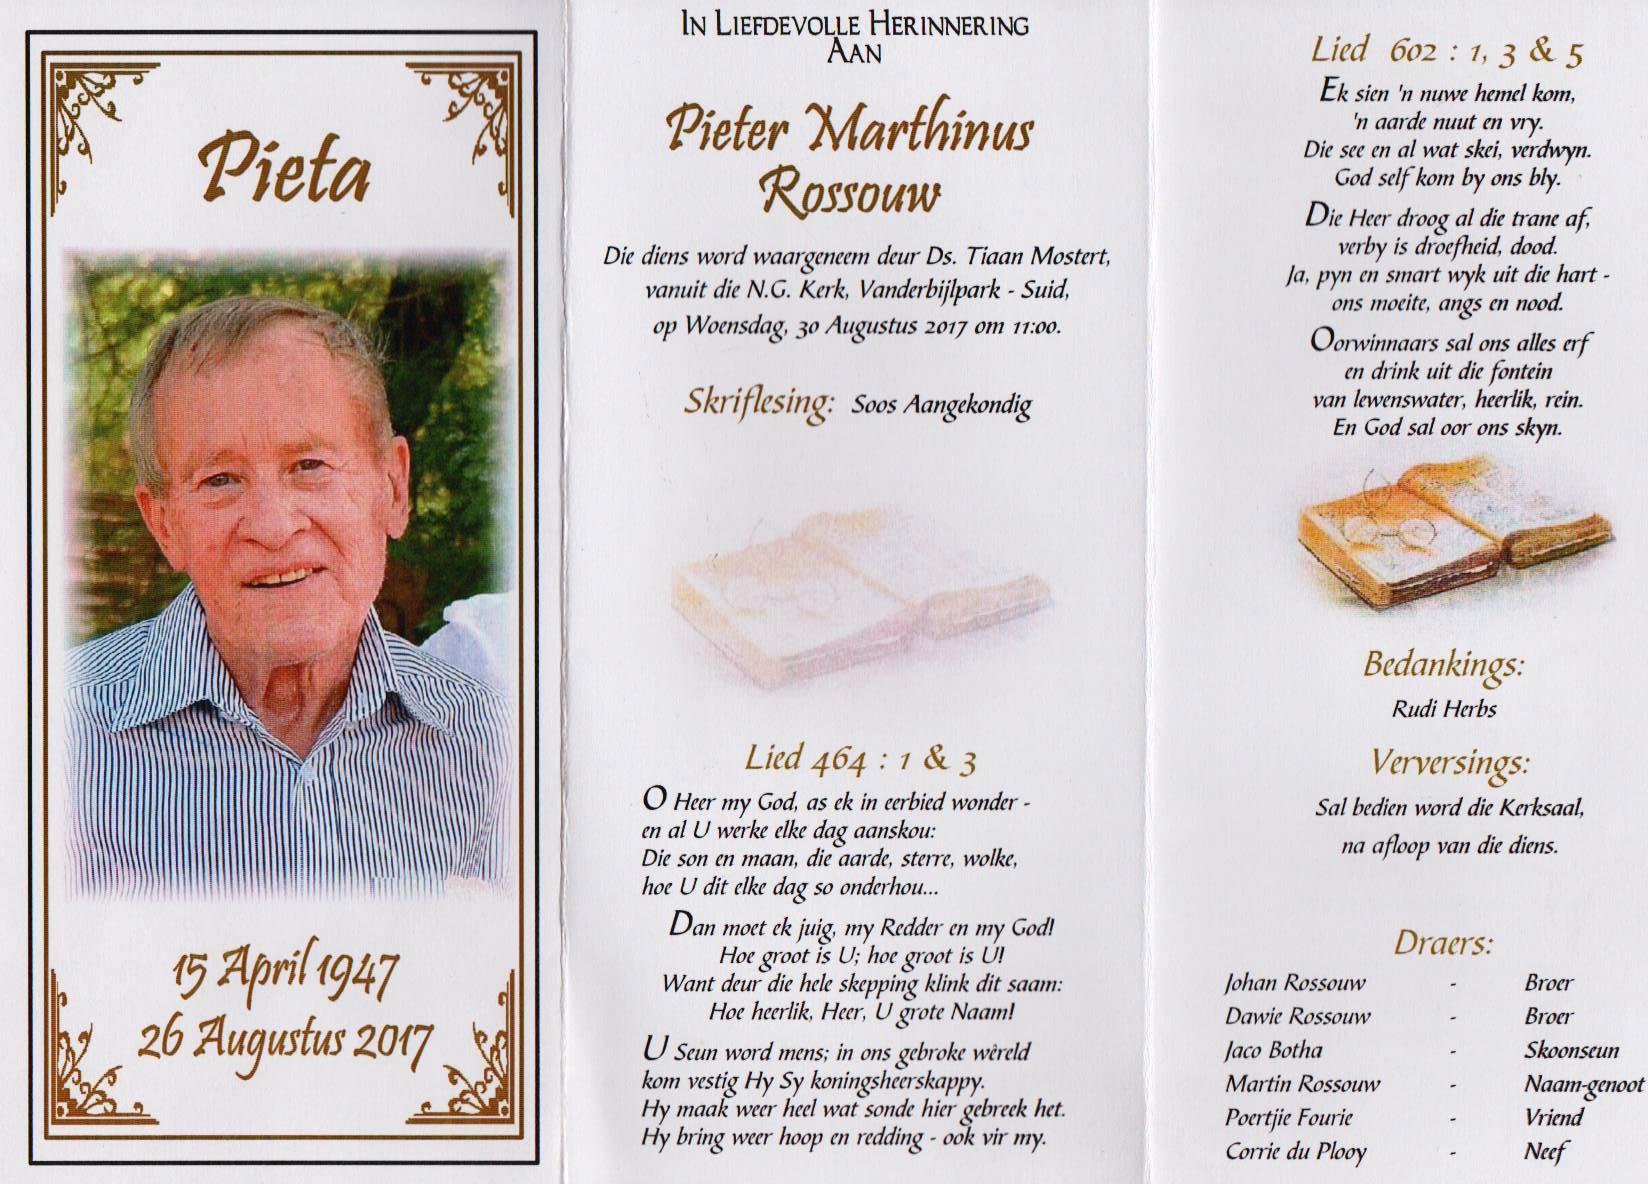 Pieta
15 April 1947
26 Augustus 2017
In Liefdevolle Herinnering
Aan
Pieter Marthinus
Rossouw
Die diens word waargeneem deur Ds. Tiaan Mostert,
vanuit die N.G. Kerk, Vanderbijlpark - Suid,
op Woensdag, 30 Augustus 2017 om 11:00.
Skriflesing: Soos Aangekondig
Lied 464 : 1 & 3
O Heer my God, as ek in eerbied wonder -
en al U werke elke dag aanskou:
Die son en maan, die aarde, sterre, wolke,
hoe U dit elke dag so onderhou...
Dan moet ek juig, my Redder en my God!
Hoe groot is U; hoe groot is U!
Want deur die hele skepping klink dit saam:
Hoe heerlik, Heer, U grote Naam!
U Seun word mens; in ons gebroke wêreld
kom vestig Hy Sy koningsheerskappy.
Hy maak weer heel wat sonde hier gebreek het.
Hy bring weer hoop en redding - ook vir my.
Lied 602 : 1, 3 & 5
Ek sien 'n nuwe hemel kom,
'n aarde nuut en vry.
Die see en al wat skei, verdwyn.
God self kom by ons bly.
Die Heer droog al die trane af,
verby is droefheid, dood.
Ja, pyn en smart wyk uit die hart -
ons moeite, angs en nood.
Oorwinnaars sal ons alles erf
en drink uit die fontein
van lewenswater, heerlik, rein.
En God sal oor ons skyn.
Bedankings:
Rudi Herbs
Verversings:
Sal bedien word die Kerksaal,
na afloop van die diens.
Draers:
Johan Rossouw - Broer
Dawie Rossouw - Broer
Jaco Botha - Skoonseun
Martin Rossouw - Naam-genoot
Poertjie Fourie - Vriend
Corrie du Plooy - Neef